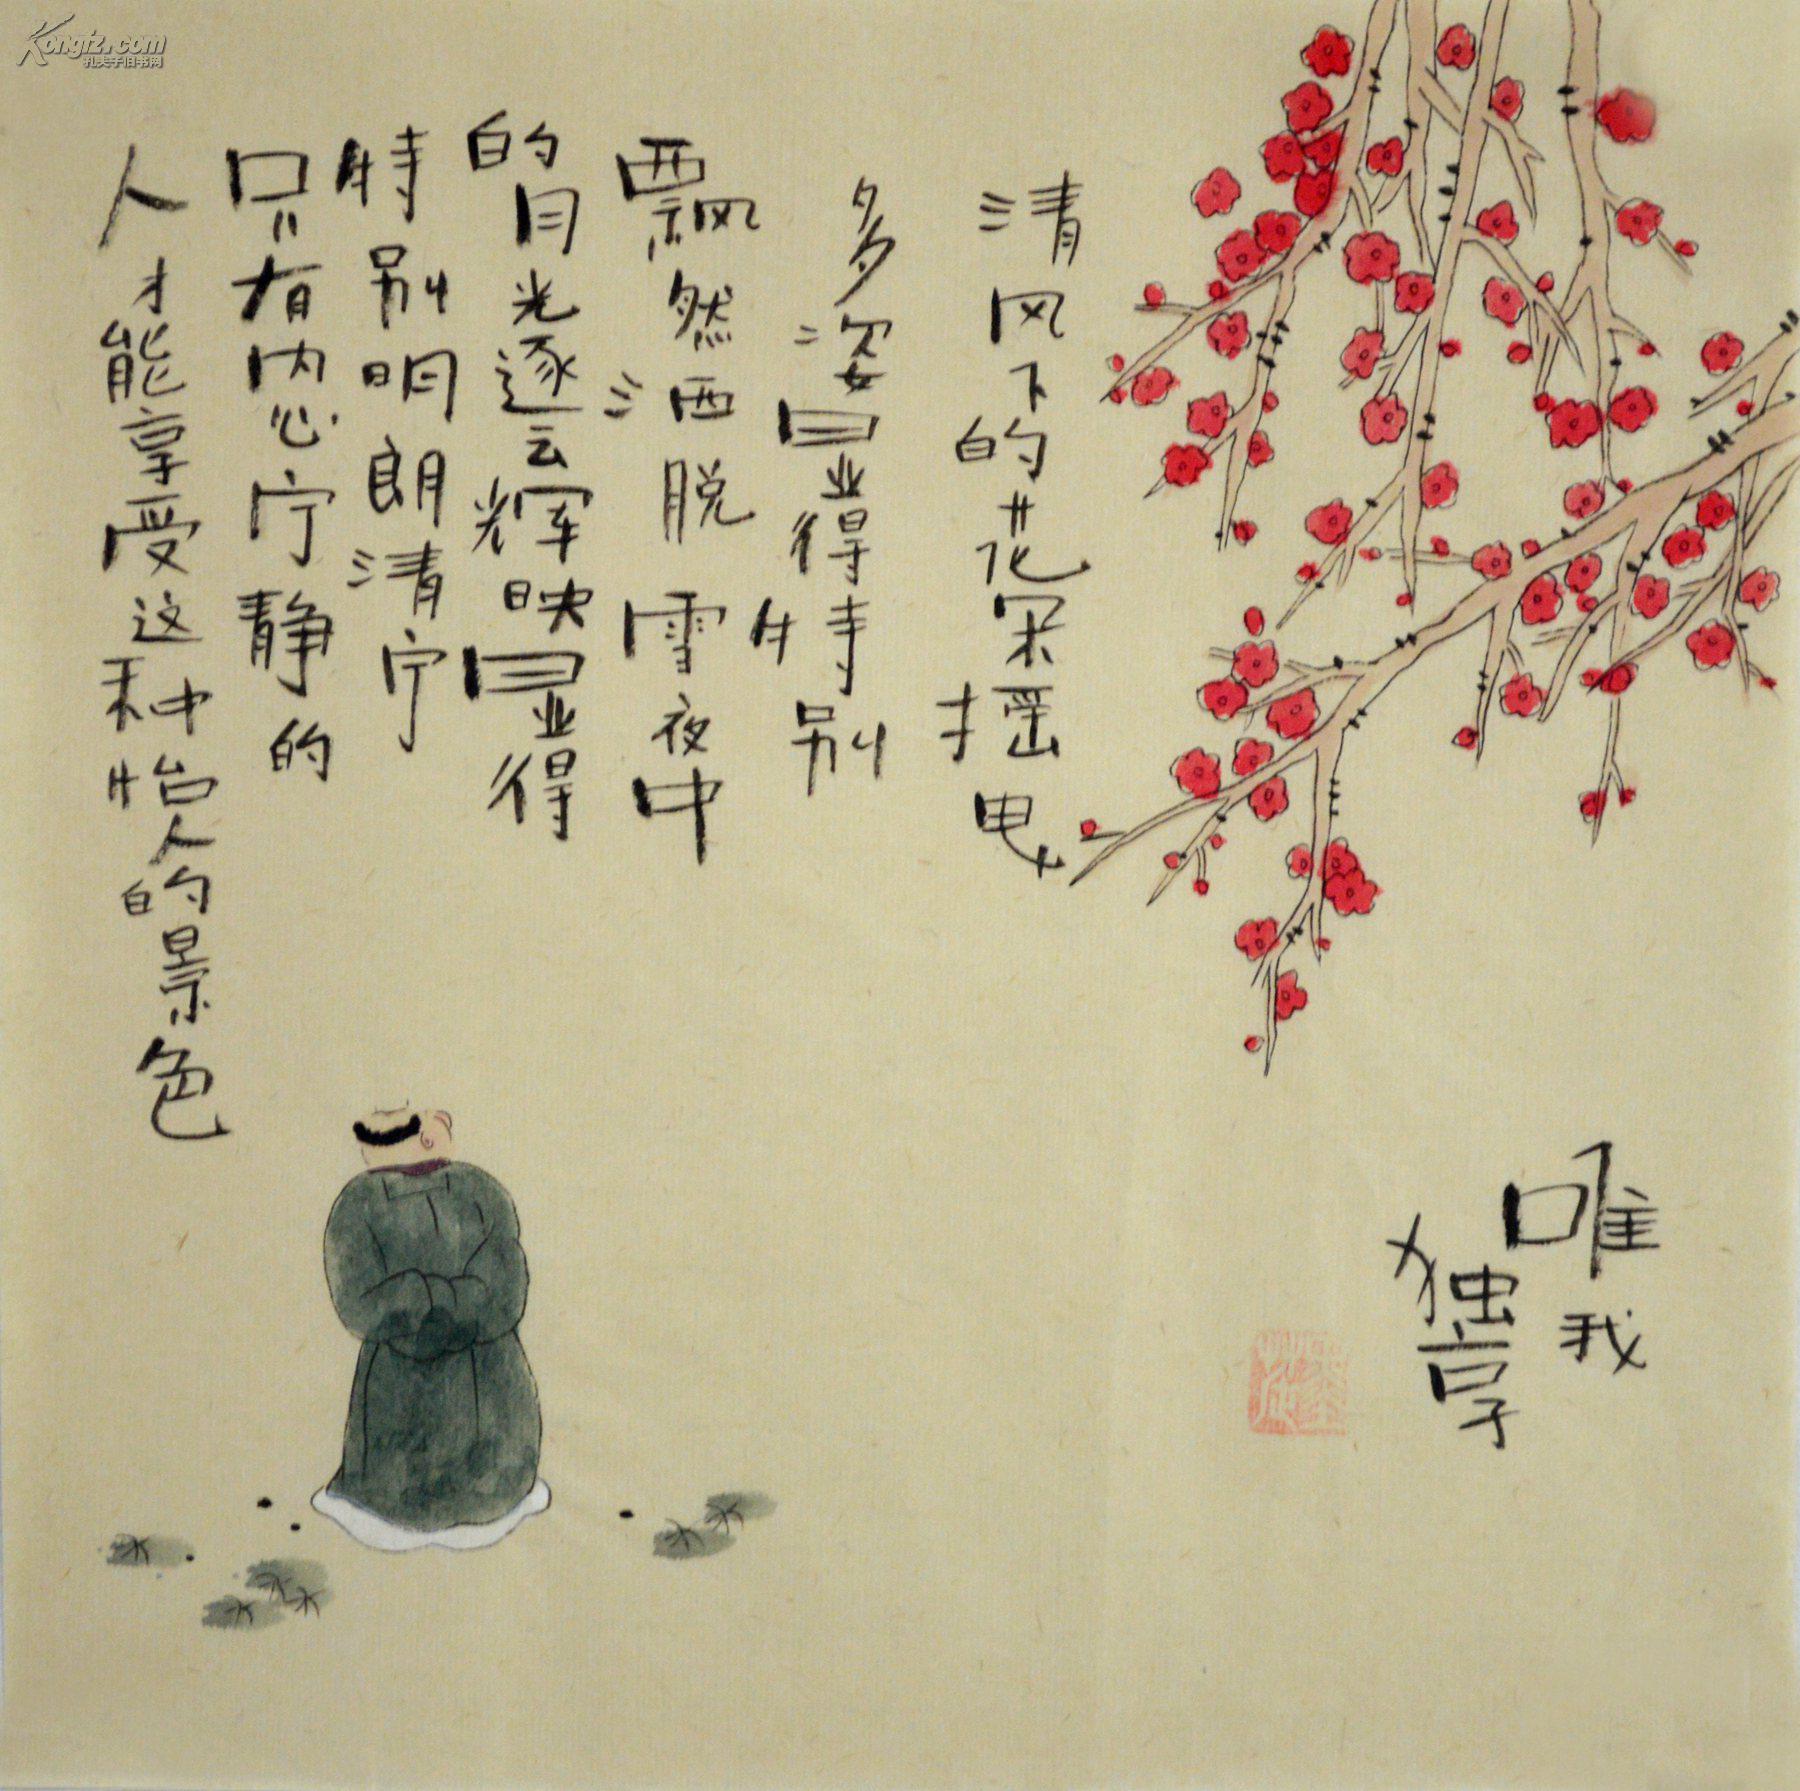 清风下的花朵摇曳
多姿显得特别
飘然洒脱雪夜中
的月光逐云辉映显得
特别明朗清宁
只有内心宁静的
人才能享受这种怡人的景色
唯我
独享
Kongfz.com
孔夫子旧书网